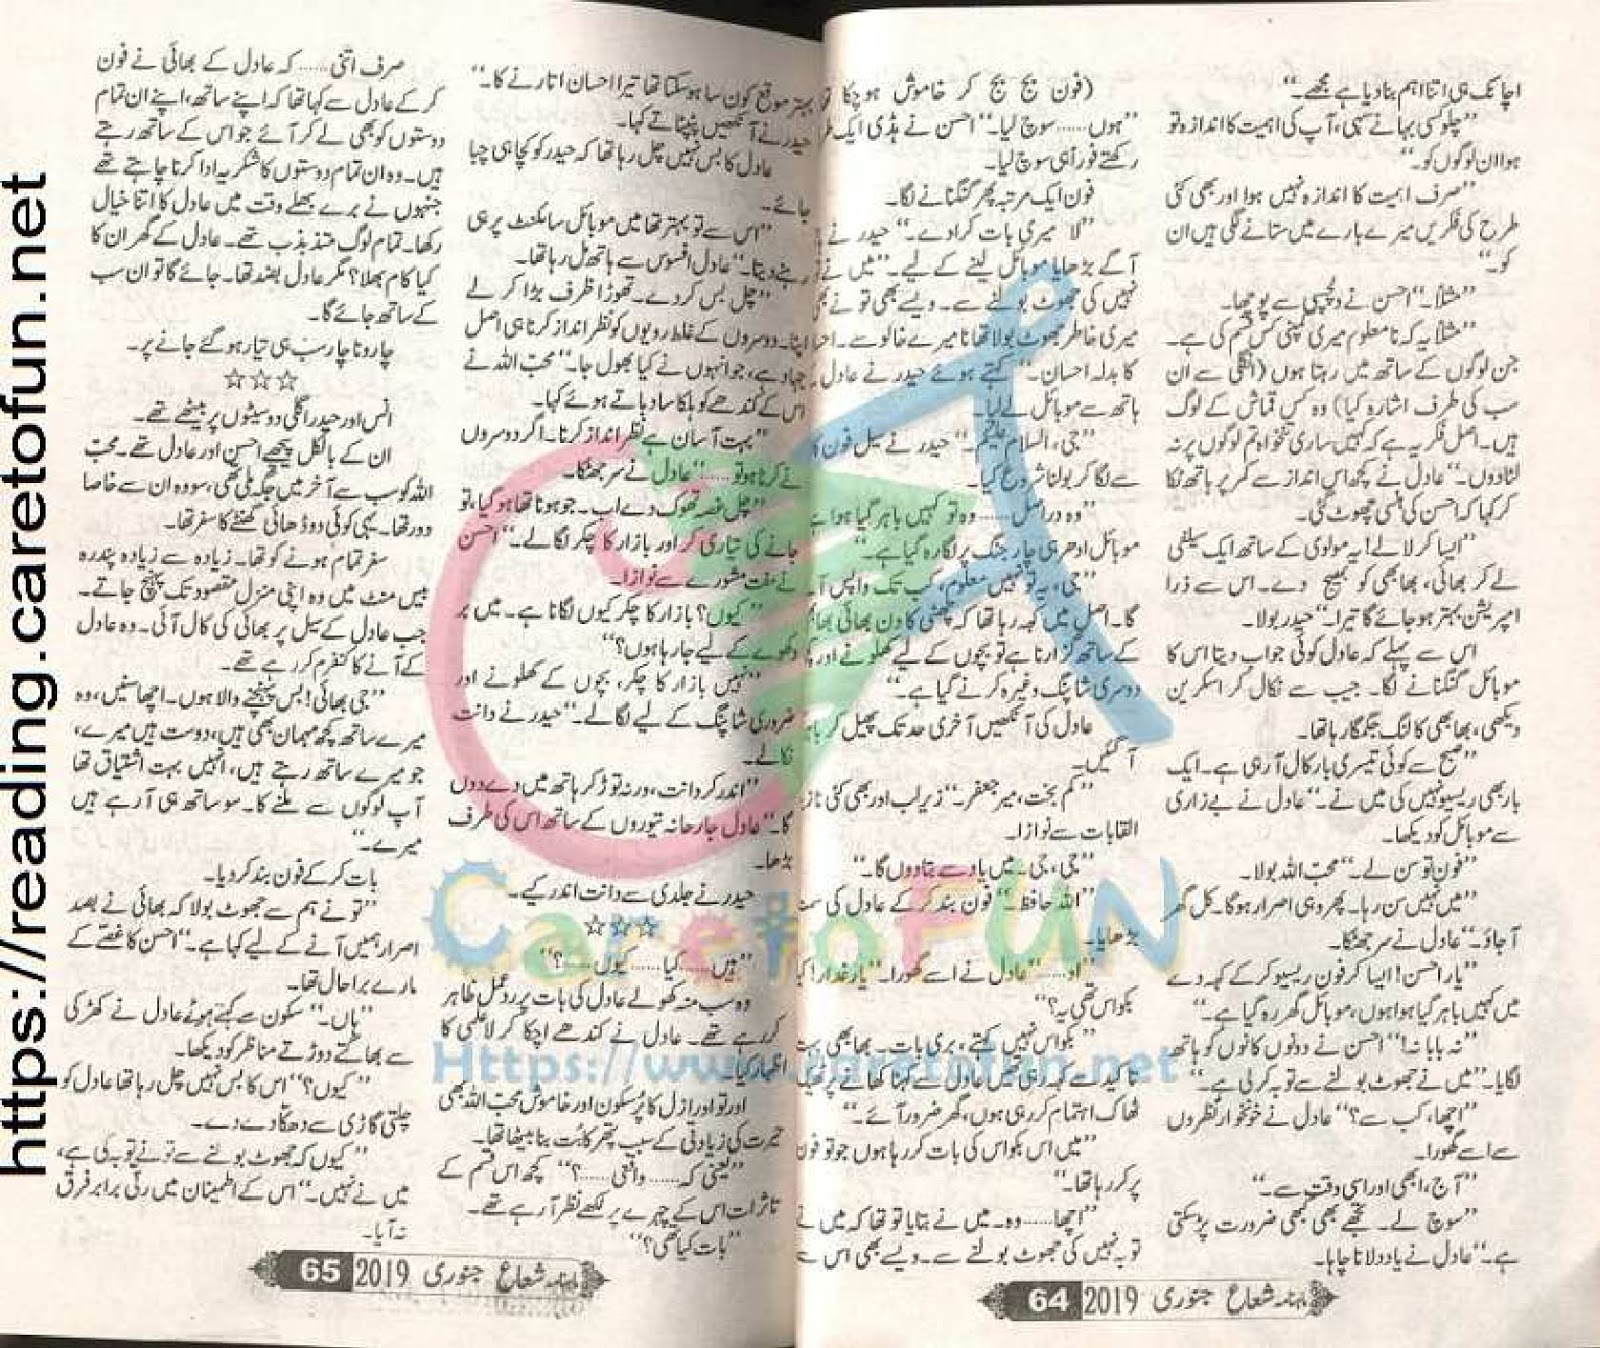 اچانک ہی اتنا اہم بنا دیا ہے مجھے۔“
”چلو کسی بہانے سہی، آپ کی اہمیت کا اندازہ تو
ہوا ان لوگوں کو۔“
”صرف اہمیت کا اندازہ نہیں ہوا اور بھی کئی
طرح کی فکریں میرے بارے میں ستانے لگی ہیں ان
کو۔“
”مثلاً۔“ احسن نے دلچسپی سے پوچھا۔
”مثلاً یہ کہ نا معلوم میری کمپنی کس قسم کی ہے۔
جن لوگوں کے ساتھ میں رہتا ہوں (انگلی سے ان
سب کی طرف اشارہ کیا) وہ کس قماش کے لوگ
ہیں۔ اصل فکر یہ ہے کہ کہیں ساری تنخواہ تم لوگوں پر نہ
لٹا دوں۔“ عادل نے کچھ اس انداز سے کمر پر ہاتھ ٹکا
کر کہا کہ احسن کی ہنسی چھوٹ گئی۔
”ایسا کر لالے! یہ مولوی کے ساتھ ایک سیلفی
لے کر بھائی، بھابھی کو بھیج دے۔ اس سے ذرا
امپریشن بہتر ہو جائے گا تیرا۔“ حیدر بولا۔
اس سے پہلے کہ عادل کوئی جواب دیتا اس کا
موبائل گنگنانے لگا۔ جیب سے نکال کر اسکرین
دیکھی، بھابھی کالنگ جگمگا رہا تھا۔
”صبح سے کوئی تیسری بار کال آ رہی ہے۔ ایک
بار بھی ریسیو نہیں کی میں نے۔“ عادل نے بے زاری
سے موبائل کو دیکھا۔
”فون تو سن لے۔“ محبّ اللہ بولا۔
”میں نہیں سن رہا۔ پھر وہی اصرار ہو گا۔ کل گھر
آ جاؤ۔“ عادل نے سر جھٹکا۔
”یار احسن! ایسا کر فون ریسیو کر کے کہہ دے
میں کہیں باہر گیا ہوا ہوں، موبائل گھر رہ گیا ہے۔“
”نہ بابا نہ!“ احسن نے دونوں کانوں کو ہاتھ
لگایا۔ ”میں نے جھوٹ بولنے سے توبہ کر لی ہے۔“
”اچھا، کب سے؟“ عادل نے خونخوار نظروں
سے اسے گھورا۔
”آج، ابھی اور اسی وقت سے۔“
”سوچ لے۔ تجھے بھی کبھی ضرورت پڑ سکتی
ہے۔“ عادل نے یاد دلانا چاہا۔
(فون بج بج کر خاموش ہو چکا تھا
”ہوں...... سوچ لیا۔“ احسن نے ہڈی ایک طر
رکھتے فوراً ہی سوچ لیا۔
فون ایک مرتبہ پھر گنگنانے لگا۔
”لا میری بات کرا دے۔“ حیدر نے
آگے بڑھایا موبائل لینے کے لیے۔ ”میں نے
نہیں کی جھوٹ بولنے سے۔ ویسے بھی تو نے بھی
میری خاطر جھوٹ بولا تھا نا میرے خالو سے۔ احسا
کا بدلہ احسان۔“ کہتے ہوئے حیدر نے عادل
ہاتھ سے موبائل لے لیا۔
”جی، السلام علیکم۔“ حیدر نے سیل فون کا
سے لگا کر بولنا شروع کیا۔
”وہ دراصل...... وہ تو کہیں باہر گیا ہوا ہے
موبائل ادھر ہی چارجنگ پر لگا رہ گیا ہے۔“
”جی، یہ تو نہیں معلوم، کب تک واپس آ
گا۔ اصل میں کہہ رہا تھا کہ چھٹی کا دن بھائی بھا
کے ساتھ گزارنا ہے تو بچوں کے لیے کھلونے اور
دوسری شاپنگ وغیرہ کرنے گیا ہے۔“
عادل کی آنکھیں آخری حد تک پھیل کر باہر
آ گئیں۔
”کم بخت، میر جعفر۔“ زیر لب اور بھی کئی ناز
القابات سے نوازا۔
”جی، جی۔ میں یاد سے بتا دوں گا۔“
”اللہ حافظ۔“ فون بند کر کے عادل کی سمت
بڑھایا۔
”او......“ عادل نے اسے گھورا۔ ”یار غدار! کیا
بکواس تھی یہ؟“
”بکواس نہیں کہتے، بری بات۔ بھابھی بہت
تاکید سے کہہ رہی تھیں عادل سے کہنا کھانے پر ٹھیک
ٹھاک اہتمام کر رہی ہوں، گھر ضرور آئے۔“
”میں اس بکواس کی بات کر رہا ہوں جو تو فون
پر کر رہا تھا۔“
”اچھا...... وہ۔ میں نے بتایا تو تھا کہ میں نے
توبہ نہیں کی جھوٹ بولنے سے۔ ویسے بھی اس سے
ماہنامہ شعاع جنوری 2019 64
بہتر موقع کون سا ہو سکتا تھا تیرا احسان اتارنے کا۔“
حیدر نے آنکھیں پٹپٹاتے کہا۔
عادل کا بس نہیں چل رہا تھا کہ حیدر کو کچا ہی چبا
جائے۔
”اس سے تو بہتر تھا میں موبائل سائلنٹ پر ہی
رہنے دیتا۔“ عادل افسوس سے ہاتھ مل رہا تھا۔
”چل بس کر دے۔ تھوڑا ظرف بڑا کر لے
اپنا۔ دوسروں کے غلط رویوں کو نظر انداز کرنا ہی اصل
جہاد ہے، جو انہوں نے کیا بھول جا۔“ محبّ اللہ نے
اس کے کندھے کو ہلکا سا دباتے ہوئے کہا۔
”بہت آسان ہے نظر انداز کرنا۔ اگر دوسروں
نے کرنا ہو تو......“ عادل نے سر جھٹکا۔
”چل غصہ تھوک دے اب۔ جو ہونا تھا ہو گیا، تو
جانے کی تیاری کر اور بازار کا چکر لگا لے۔“ احسن
نے مفت مشورے سے نوازا۔
”کیوں؟ بازار کا چکر کیوں لگانا ہے۔ میں بر
دکھوے کے لیے جا رہا ہوں؟“
”نہیں بازار کا چکر، بچوں کے کھلونے اور
ضروری شاپنگ کے لیے لگا لے۔“ حیدر نے دانت
نکالے۔
”اندر کر دانت، ورنہ توڑ کر ہاتھ میں دے دوں
گا۔“ عادل جارحانہ تیوروں کے ساتھ اس کی طرف
بڑھا۔
حیدر نے جلدی سے دانت اندر کیے۔
☆☆☆
”ہیں...... کیا...... کیوں......؟“
وہ سب منہ کھولے عادل کی بات پر ردعمل ظاہر
کر رہے تھے۔ عادل نے کندھے اچکا کر لاعلمی کا
اظہار کیا۔
اور تو اور ازل کا پُرسکون اور خاموش محبّ اللہ بھی
حیرت کی زیادتی کے سبب پتھر کا بُت بنا بیٹھا تھا۔
”یعنی کہ...... واقعی......؟“ کچھ اس قسم کے
تاثرات اس کے چہرے پر لکھے نظر آ رہے تھے۔
”بات کیا تھی؟“
صرف اتنی...... کہ عادل کے بھائی نے فون
کر کے عادل سے کہا تھا کہ اپنے ساتھ، اپنے ان تمام
دوستوں کو بھی لے کر آئے جو اس کے ساتھ رہتے
ہیں۔ وہ ان تمام دوستوں کا شکریہ ادا کرنا چاہتے تھے
جنہوں نے برے بھلے وقت میں عادل کا اتنا خیال
رکھا۔ تمام لوگ متذبذب تھے۔ عادل کے گھر ان کا
کیا کام بھلا؟ مگر عادل بضد تھا۔ جائے گا تو ان سب
کے ساتھ جائے گا۔
چار و ناچار سب ہی تیار ہو گئے جانے پر۔
☆☆☆
انس اور حیدر اگلی دو سیٹوں پر بیٹھے تھے۔
ان کے بالکل پیچھے احسن اور عادل تھے۔ محبّ
اللہ کو سب سے آخر میں جگہ ملی تھی، سو وہ ان سے خاصا
دور تھا۔ یہی کوئی دو ڈھائی گھنٹے کا سفر تھا۔
سفر تمام ہونے کو تھا۔ زیادہ سے زیادہ پندرہ
بیس منٹ میں وہ اپنی منزل مقصود تک پہنچ جاتے۔
جب عادل کے سیل پر بھائی کی کال آئی۔ وہ عادل
کے آنے کا کنفرم کر رہے تھے۔
”جی بھائی! بس پہنچنے والا ہوں۔ اچھا سنیں، وہ
میرے ساتھ کچھ مہمان بھی ہیں، دوست ہیں میرے،
جو میرے ساتھ رہتے ہیں، انہیں بہت اشتیاق تھا
آپ لوگوں سے ملنے کا۔ سو ساتھ ہی آ رہے ہیں
میرے۔“
بات کر کے فون بند کر دیا۔
”تو نے ہم سے جھوٹ بولا کہ بھائی نے بصد
اصرار ہمیں آنے کے لیے کہا ہے۔“ احسن کا غصّے کے
مارے برا حال تھا۔
”ہاں۔“ سکون سے کہتے ہوئے عادل نے کھڑکی
سے بھاگتے دوڑتے مناظر کو دیکھا۔
”کیوں؟“ اس کا بس نہیں چل رہا تھا عادل کو
چلتی گاڑی سے دھکا دے دے۔
”کیوں کہ جھوٹ بولنے سے تو نے توبہ کی ہے،
میں نے نہیں۔“ اس کے اطمینان میں رتی برابر فرق
نہ آیا۔
ماہنامہ شعاع جنوری 2019 65
https://reading.caretofun.net
CaretoFUN
Https://www.caretofun.net